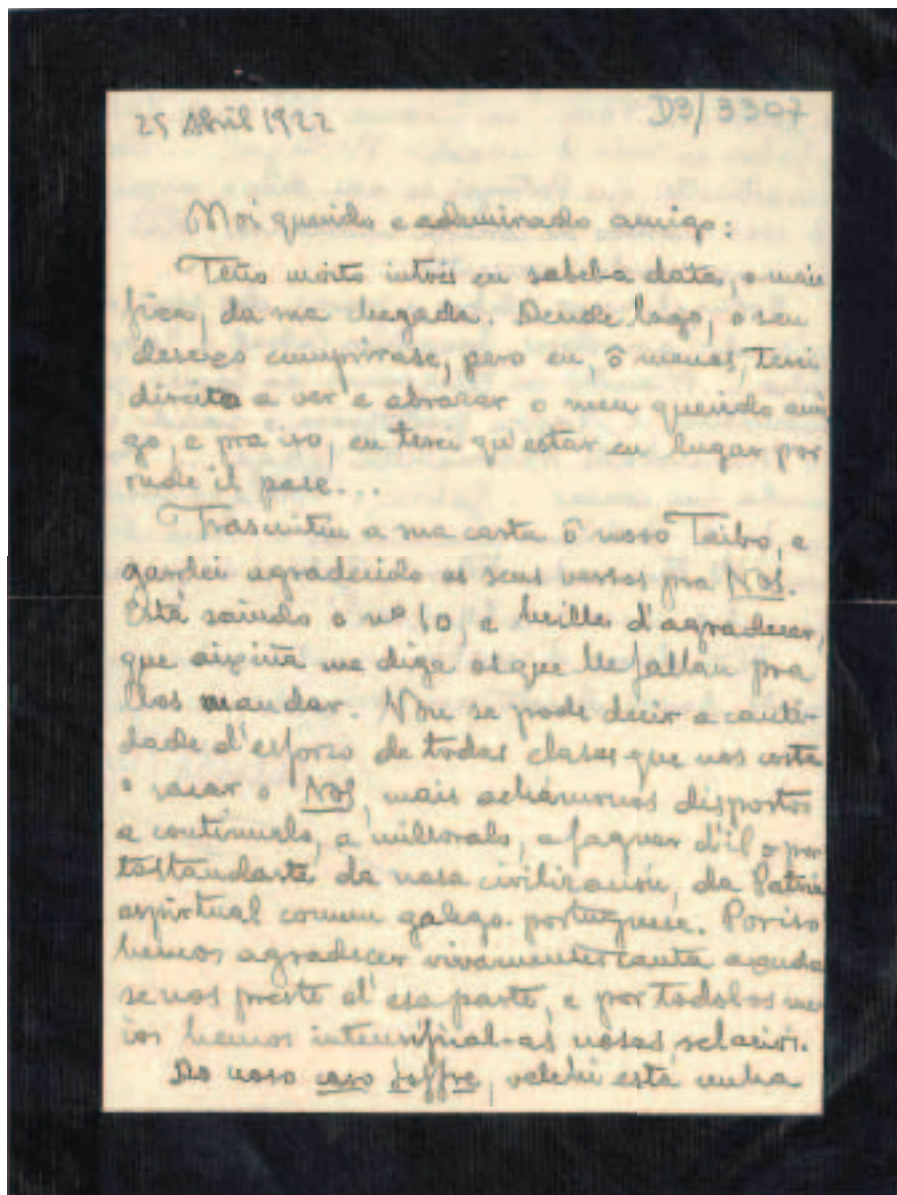 25 Abril 1922
D3/3307
Moi querido e admirado amigo:
Teño moito intrés en sabel-a data, o mais
fixa, da ma chegada. Dende logo, o seu
desexo cumprirase, pero eu, ô menos, terei
direito a ver e abrazar o meu querido ami
go, e pra iso, eu terei qu'estar en lugar por
onde il pase...
Trasmitin a sua carta ô noso Teibo, e
gardei agradecido os seus versos pra Nós.
Está saindo o nº 10, e heille d'agradecer,
que axiña me diga os que lle faltan pra
llos mandar. Non se pode decir a canti-
dade d'esforzo de todas clases que nos costa
o sacar o Nós, mais achámonos dispostos
a continualo, a milloralo, a faguer d'il o por
testandarte da nosa civilización, da Patria
espritual comun galego-portuguesa. Poriso
hemos agradecer vivamente canta axuda
se nos preste d'esa parte, e por todolos me
ios hemos intensifical-as nosas relaciós.
Do noso caso Joffre, velehi está unha